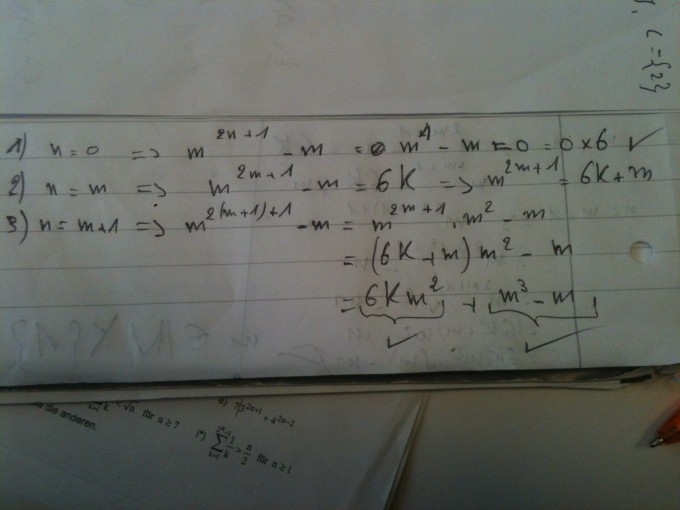 , L={2}
1) n=0 => m^{2n+1} - m = m^1 - m = 0 = 0×6 ✓
2) n=m => m^{2m+1} - m = 6K => m^{2m+1} = 6K+m
3) n=m+1 => m^{2(m+1)+1} - m = m^{2m+1} · m^2 - m
= (6K+m) m^2 - m
= 6Km^2 + m^3 - m
✓ ✓
die anderen.
< √n für n ≥ ?
e) 7|3^{2n+1} + 4^{2n-2}
f) ∑ 1/k > n/2 für n ≥ 1